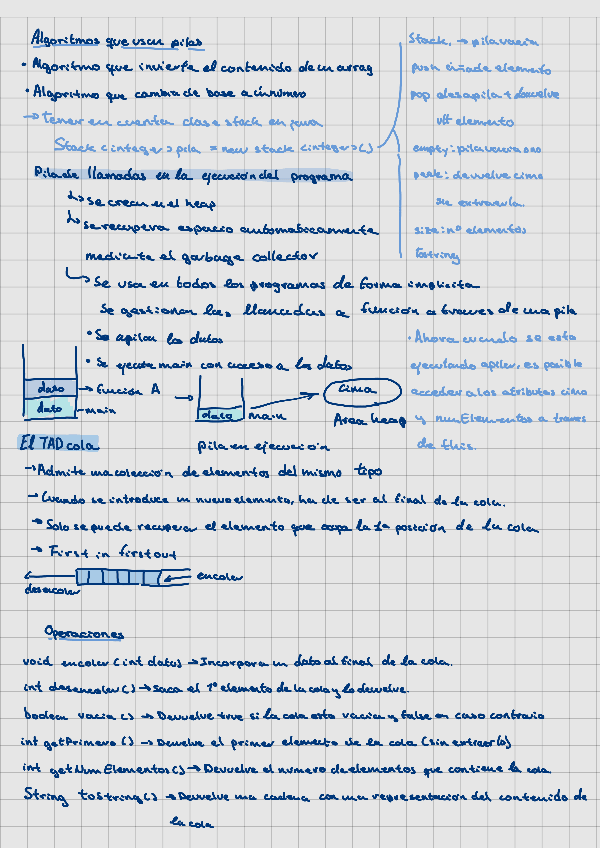 Algoritmos que usan pilas
· Algoritmo que invierte el contenido de un array
· Algoritmo que cambia de base a un número
→ tener en cuenta clase stack en java
Stack <integer> pila = new stack <integer> ()
Stack → pila vacia
push añade elemento
pop desapila + devuelve
ult elemento
empty: pila vacia o no
peek: devuelve cima
sin extraerla.
size: nº elementos
toString
Pila de llamadas en la ejecución del programa
↳ se crean en el heap
↳ se recupera espacio automáticamente
mediante el garbage collector
↳ Se usa en todos los programas de forma implicita
Se gestionan las llamadas a función a traves de una pila
· Se apilan los datos
· Se ejecuta main con acceso a los datos
· Ahora cuando se esta
ejecutando apilar, es posible
acceder a los atributos cima
y numElementos a traves
de this.
dato → función A
dato - main
dato main
Cima
Area heap
pila en ejecución
El TAD cola
→ Admite una colección de elementos del mismo tipo
→ Cuando se introduce un nuevo elemento, ha de ser al final de la cola.
→ Solo se puede recuperar el elemento que ocupa la 1ª posición de la cola
→ First in first out
encolar
desencolar
Operaciones
void encolar (int dato) → Incorpora un dato al final de la cola.
int desencolar () → Saca el 1º elemento de la cola y lo devuelve.
boolean vacia () → Devuelve true si la cola esta vacia y false en caso contrario
int getPrimero () → Devuelve el primer elemento de la cola (sin extraerlo)
int getNumElementos () → Devuelve el numero de elementos que contiene la cola
String toString () → Devuelve una cadena con una representación del contenido de
la cola